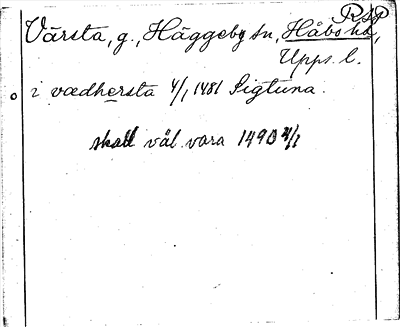 RSP
Värsta, g., Häggeby sn, Håbo hd,
Upps. l.
i vædhersta 4/1 1481 Sigtuna.
skall väl vara 1490 4/1